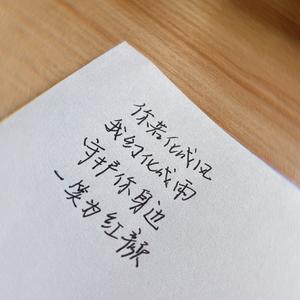 你若化成风
我幻化成雨
守护你身边
一笑为红颜